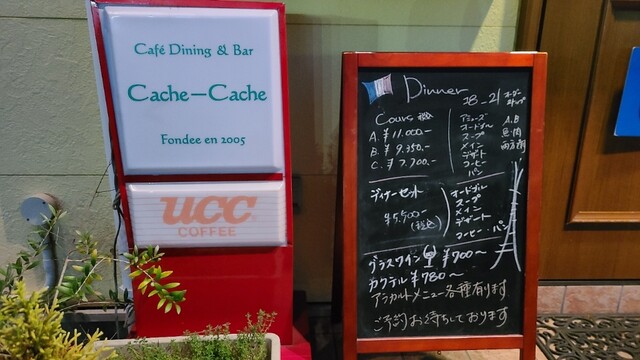 Café Dining & Bar
Cache—Cache
Fondee en 2005
UCC
COFFEE
Dinner
18-21 オーダーストップ
Cours 税込
A. ¥11.000-
B. ¥9.350-
C. ¥7.700-
アミューズ
オードブル
スープ
メイン
デザート
コーヒー
パン
A.B
魚・肉
両方
ディナーセット
¥5.500-
(税込)
オードブル
スープ
メイン
デザート
コーヒー・パン
グラスワイン ¥700〜
カクテル ¥780〜
アラカルトメニュー各種有ります
ご予約お待ちしております